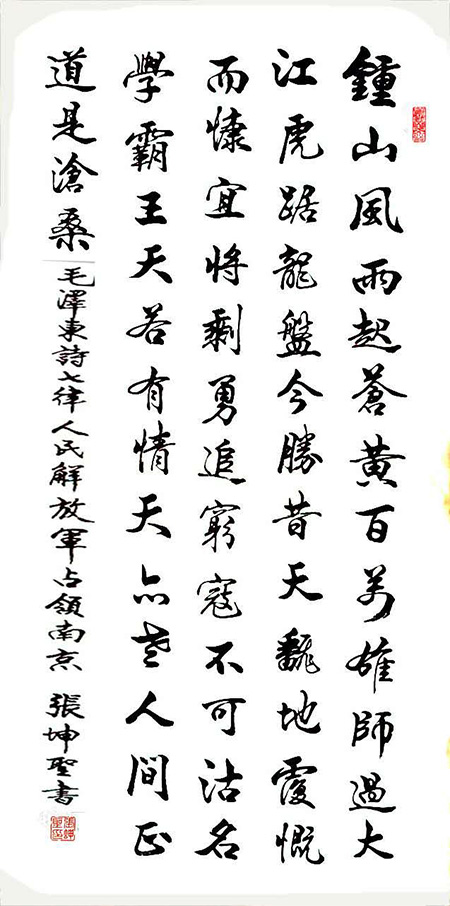 鍾山風雨起蒼黃百萬雄師過大
江虎踞龍盤今勝昔天翻地覆慨
而慷宜將剩勇追窮寇不可沽名
學霸王天若有情天亦老人間正
道是滄桑 毛澤東詩七律人民解放軍占領南京 張坤聖書